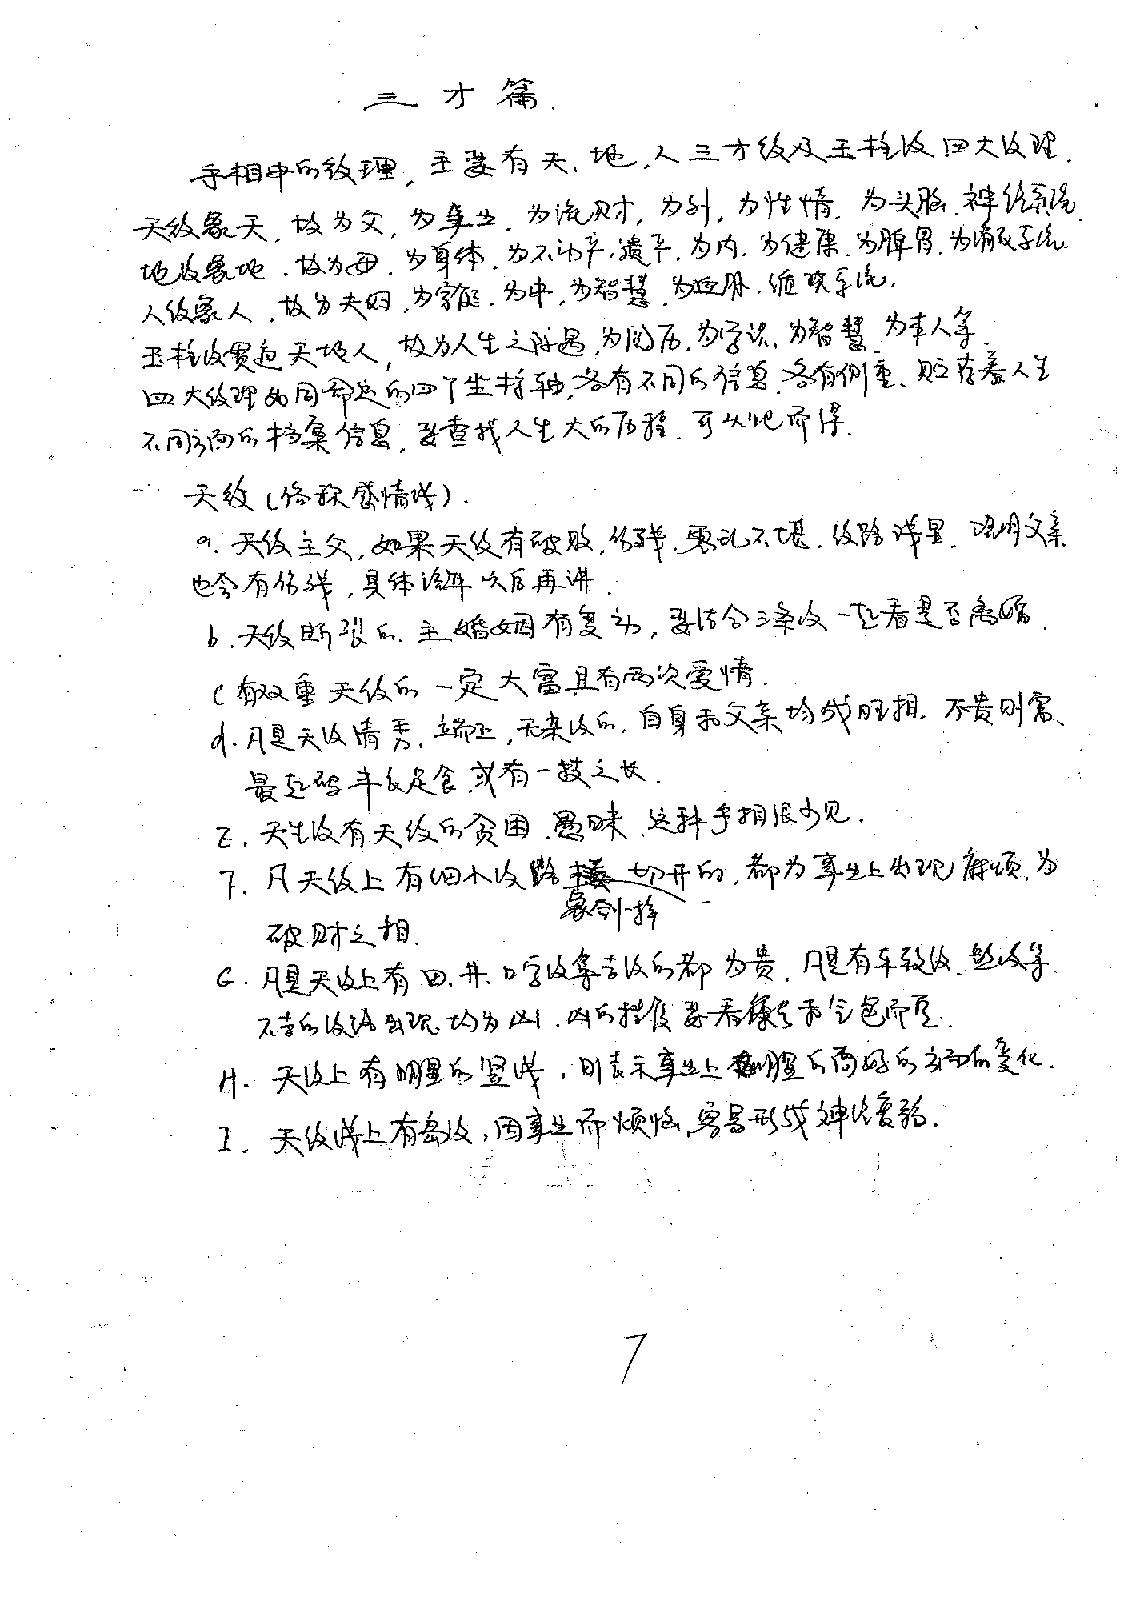 三才篇.
手相中的纹理，主要有天、地、人三才纹及玉柱纹四大纹理.
天纹象天，故为父，为事业，为流财，为外，为性情，为头脑、神经系统.
地纹象地，故为母，为身体，为不动产、遗产，为内，为健康，为脾胃，为消化系统
人纹象人，故为夫妇，为家庭，为中，为智慧，为血脉、循环系统.
玉柱纹贯通天地人，故为人生之际遇，为阅历，为学识，为智慧，为本人等.
四大纹理如同命运的四个坐标轴，各有不同的信息，各有侧重、贮存着人生
不同方面的档案信息，要查找人生大的历程，可从此而得.
天纹(俗称感情线).
a. 天纹主父，如果天纹有破败，伤残，零乱不堪，纹路浅显，说明父亲
也会有伤残，具体详解以后再讲.
b. 天纹断裂的，主婚姻有变动，要结合三条纹一起看是否离婚.
c 有双重天纹的一定大富且有两次爱情.
d. 凡是天纹清秀，端正，无杂纹的，自身和父亲均成旺相，不贵则富、
最起码丰衣足食，或有一技之长.
E. 天生没有天纹的贫困、愚昧，这种手相很少见.
F. 凡天纹上有细小纹路象剑一样切开的，都为事业上出现麻烦，为
破财之相.
G. 凡是天纹上有田、井、口字纹等吉纹的都为贵，凡是有车辙纹、纹等
不吉的纹路出现均为凶，凶的程度要看和气色而定.
H. 天纹上有明显的竖线，则表示事业上有明显的向好的方面的变化.
I. 天纹线上有岛纹，因事业而烦恼，容易形成神经衰弱.
7